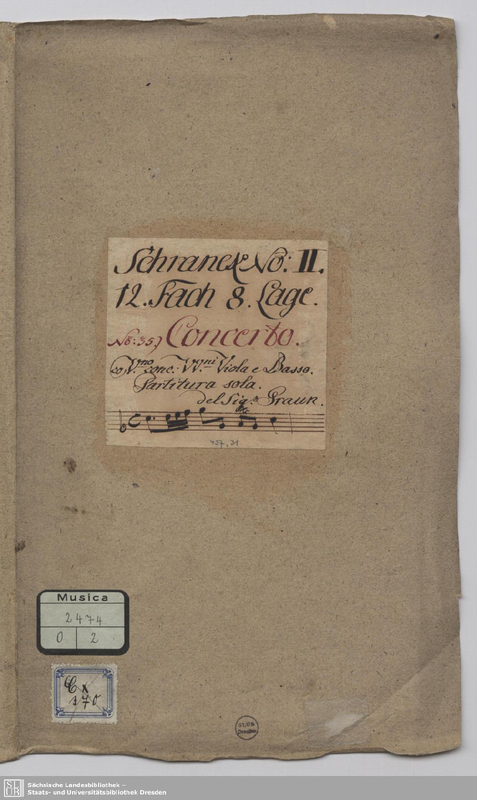 Schranck No: II.
12. Fach 8. Lage.
Concerto.
co Vno conc: VVni Viola e Basso.
Partitura sola.
del Sigr. Graun.
Musica
2474
0 2
Cx
Sächsische Landesbibliothek –
Staats- und Universitätsbibliothek Dresden